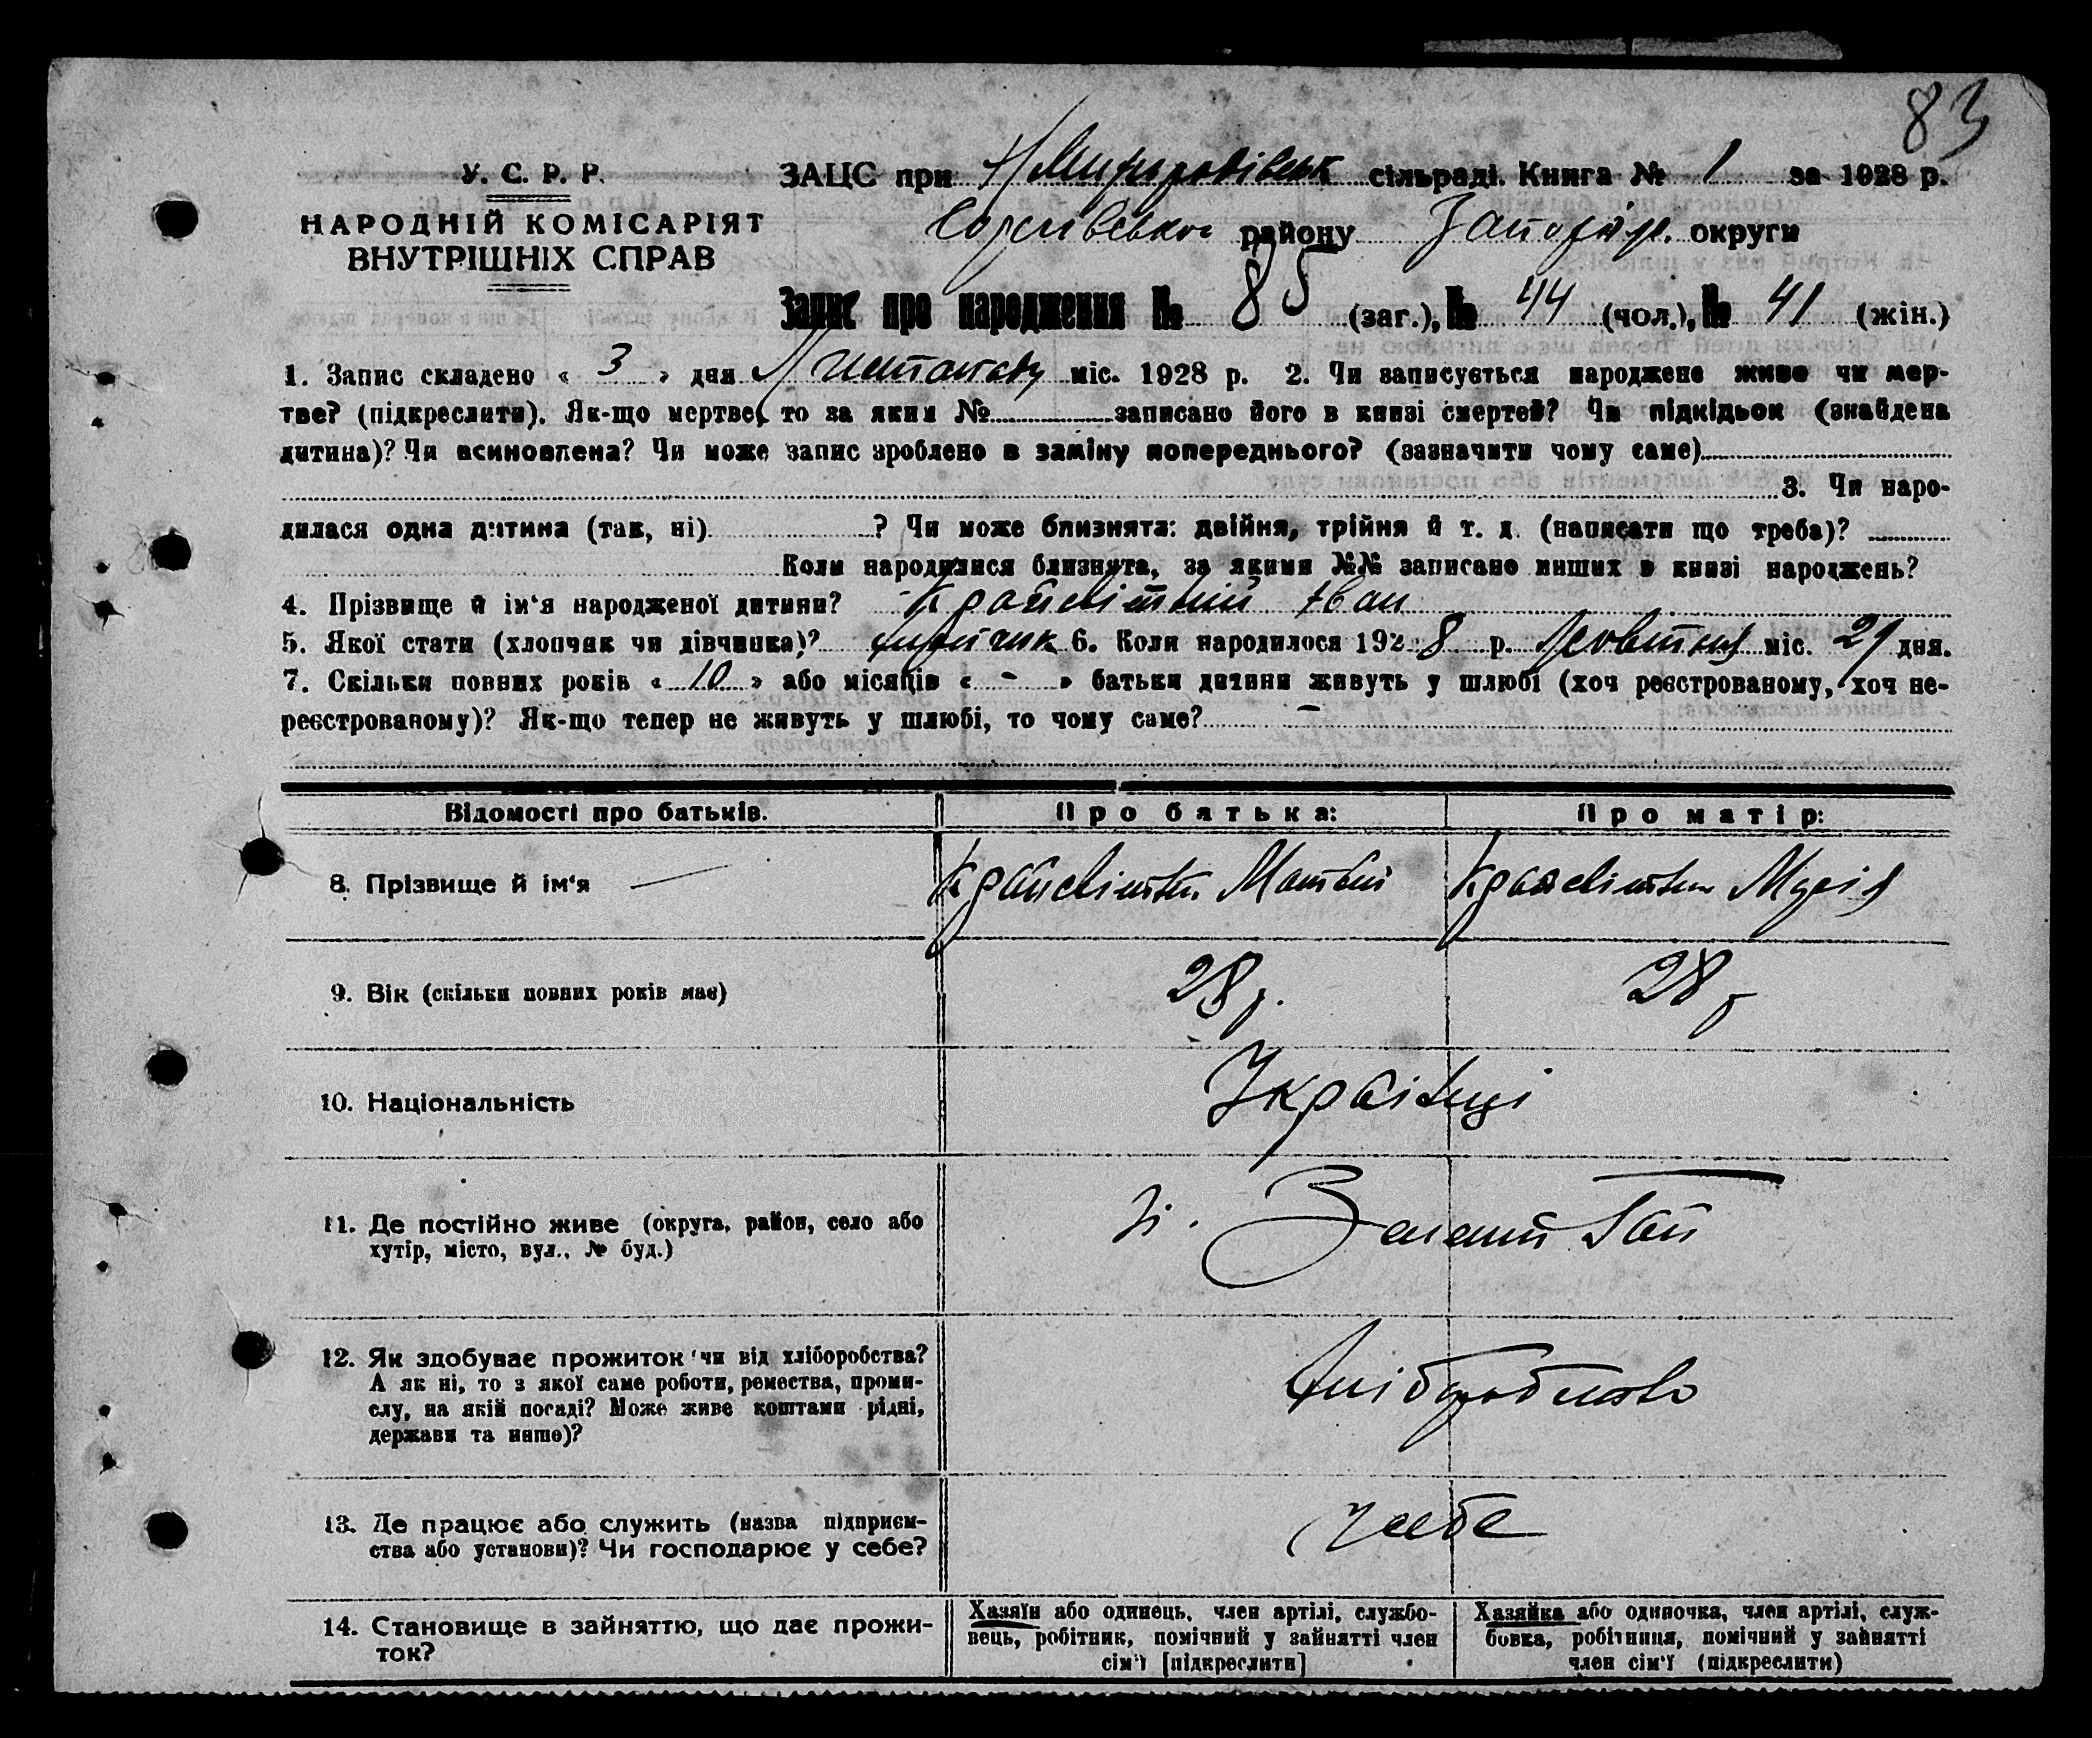 83
У. С. Р. Р.
НАРОДНІЙ КОМІСАРІЯТ
ВНУТРІШНІХ СПРАВ
ЗАЦС при сільраді. Книга № 1 за 1928 р.
району округи
Запис про народження № 85 (заг.), № 44 (чол.), № 41 (жін.)
1. Запис складено « 3 » дня Листопаду міс. 1928 р. 2. Чи записується народжене живе чи мер-
тве? (підкреслити). Як-що мертве, то за яким № записано його в книзі смертей? Чи підкідьок (знайдена
дитина)? Чи всиновлена? Чи може запис зроблено в заміну попереднього? (зазначити чому саме)
3. Чи наро-
дилася одна дитина (так, ні) ? Чи може близнята: двійня, трійня й т. д. (написати що треба)?
Коли народилися близнята, за якими №№ записано инших в книзі народжень?
4. Прізвище й ім'я народженої дитини? Крайсвітній Іван
5. Якої стати (хлопчик чи дівчинка)? хлопчик 6. Коли народилося 1928 р. Жовтня міс. 29 дня.
7. Скільки повних років « 10 » або місяців « - » батьки дитини живуть у шлюбі (хоч реєстрованому, хоч не-
реєстрованому)? Як-що тепер не живуть у шлюбі, то чому саме? -
Відомості про батьків. Про батька: Про матір:
8. Прізвище й ім'я Крайсвітній Матвій Крайсвітня Марія
9. Вік (скільки повних років має) 28 р. 28 р
10. Національність Українці
11. Де постійно живе (округа, район, село або
хутір, місто, вул., № буд.) Зелений Гай
12. Як здобуває прожиток чи від хліборобства?
А як ні, то з якої саме роботи, ремества, проми-
слу, на якій посаді? Може живе коштами рідні,
держави та инше)? Хліборобство
13. Де працює або служить (назва підприєм-
ства або установи)? Чи господарює у себе? у себе
14. Становище в зайняттю, що дає прожи-
ток?
Хазяїн або одинець, член артілі, службо-
вець, робітник, помічний у зайнятті член
сім'ї [підкреслити]
Хазяйка або одиночка, член артілі, служ-
бовка, робітниця, помічний у зайнятті
член сім'ї (підкреслити)